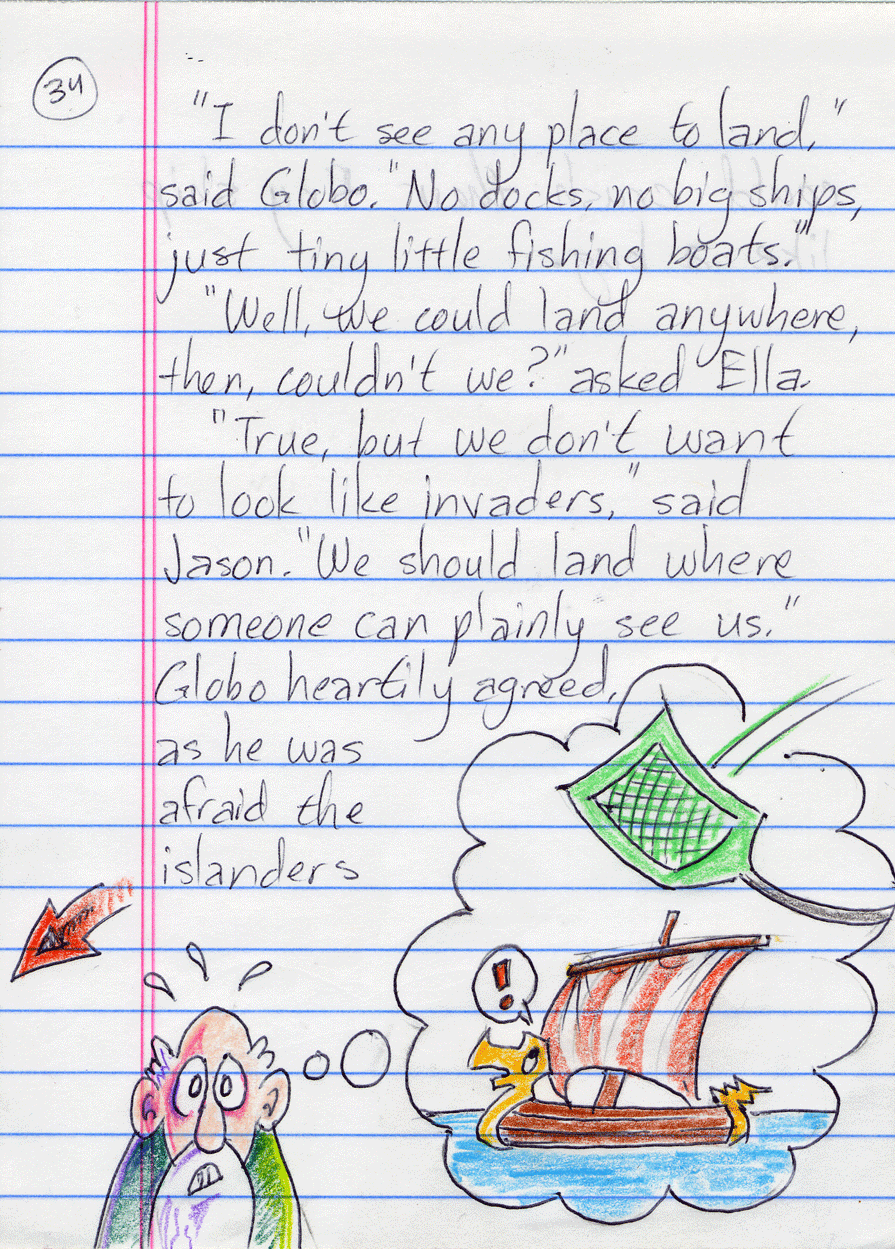 34
"I don't see any place to land,"
said Globo. "No docks, no big ships,
just tiny little fishing boats."
"Well, we could land anywhere,
then, couldn't we?" asked Ella.
"True, but we don't want
to look like invaders," said
Jason. "We should land where
someone can plainly see us."
Globo heartily agreed,
as he was
afraid the
islanders
!